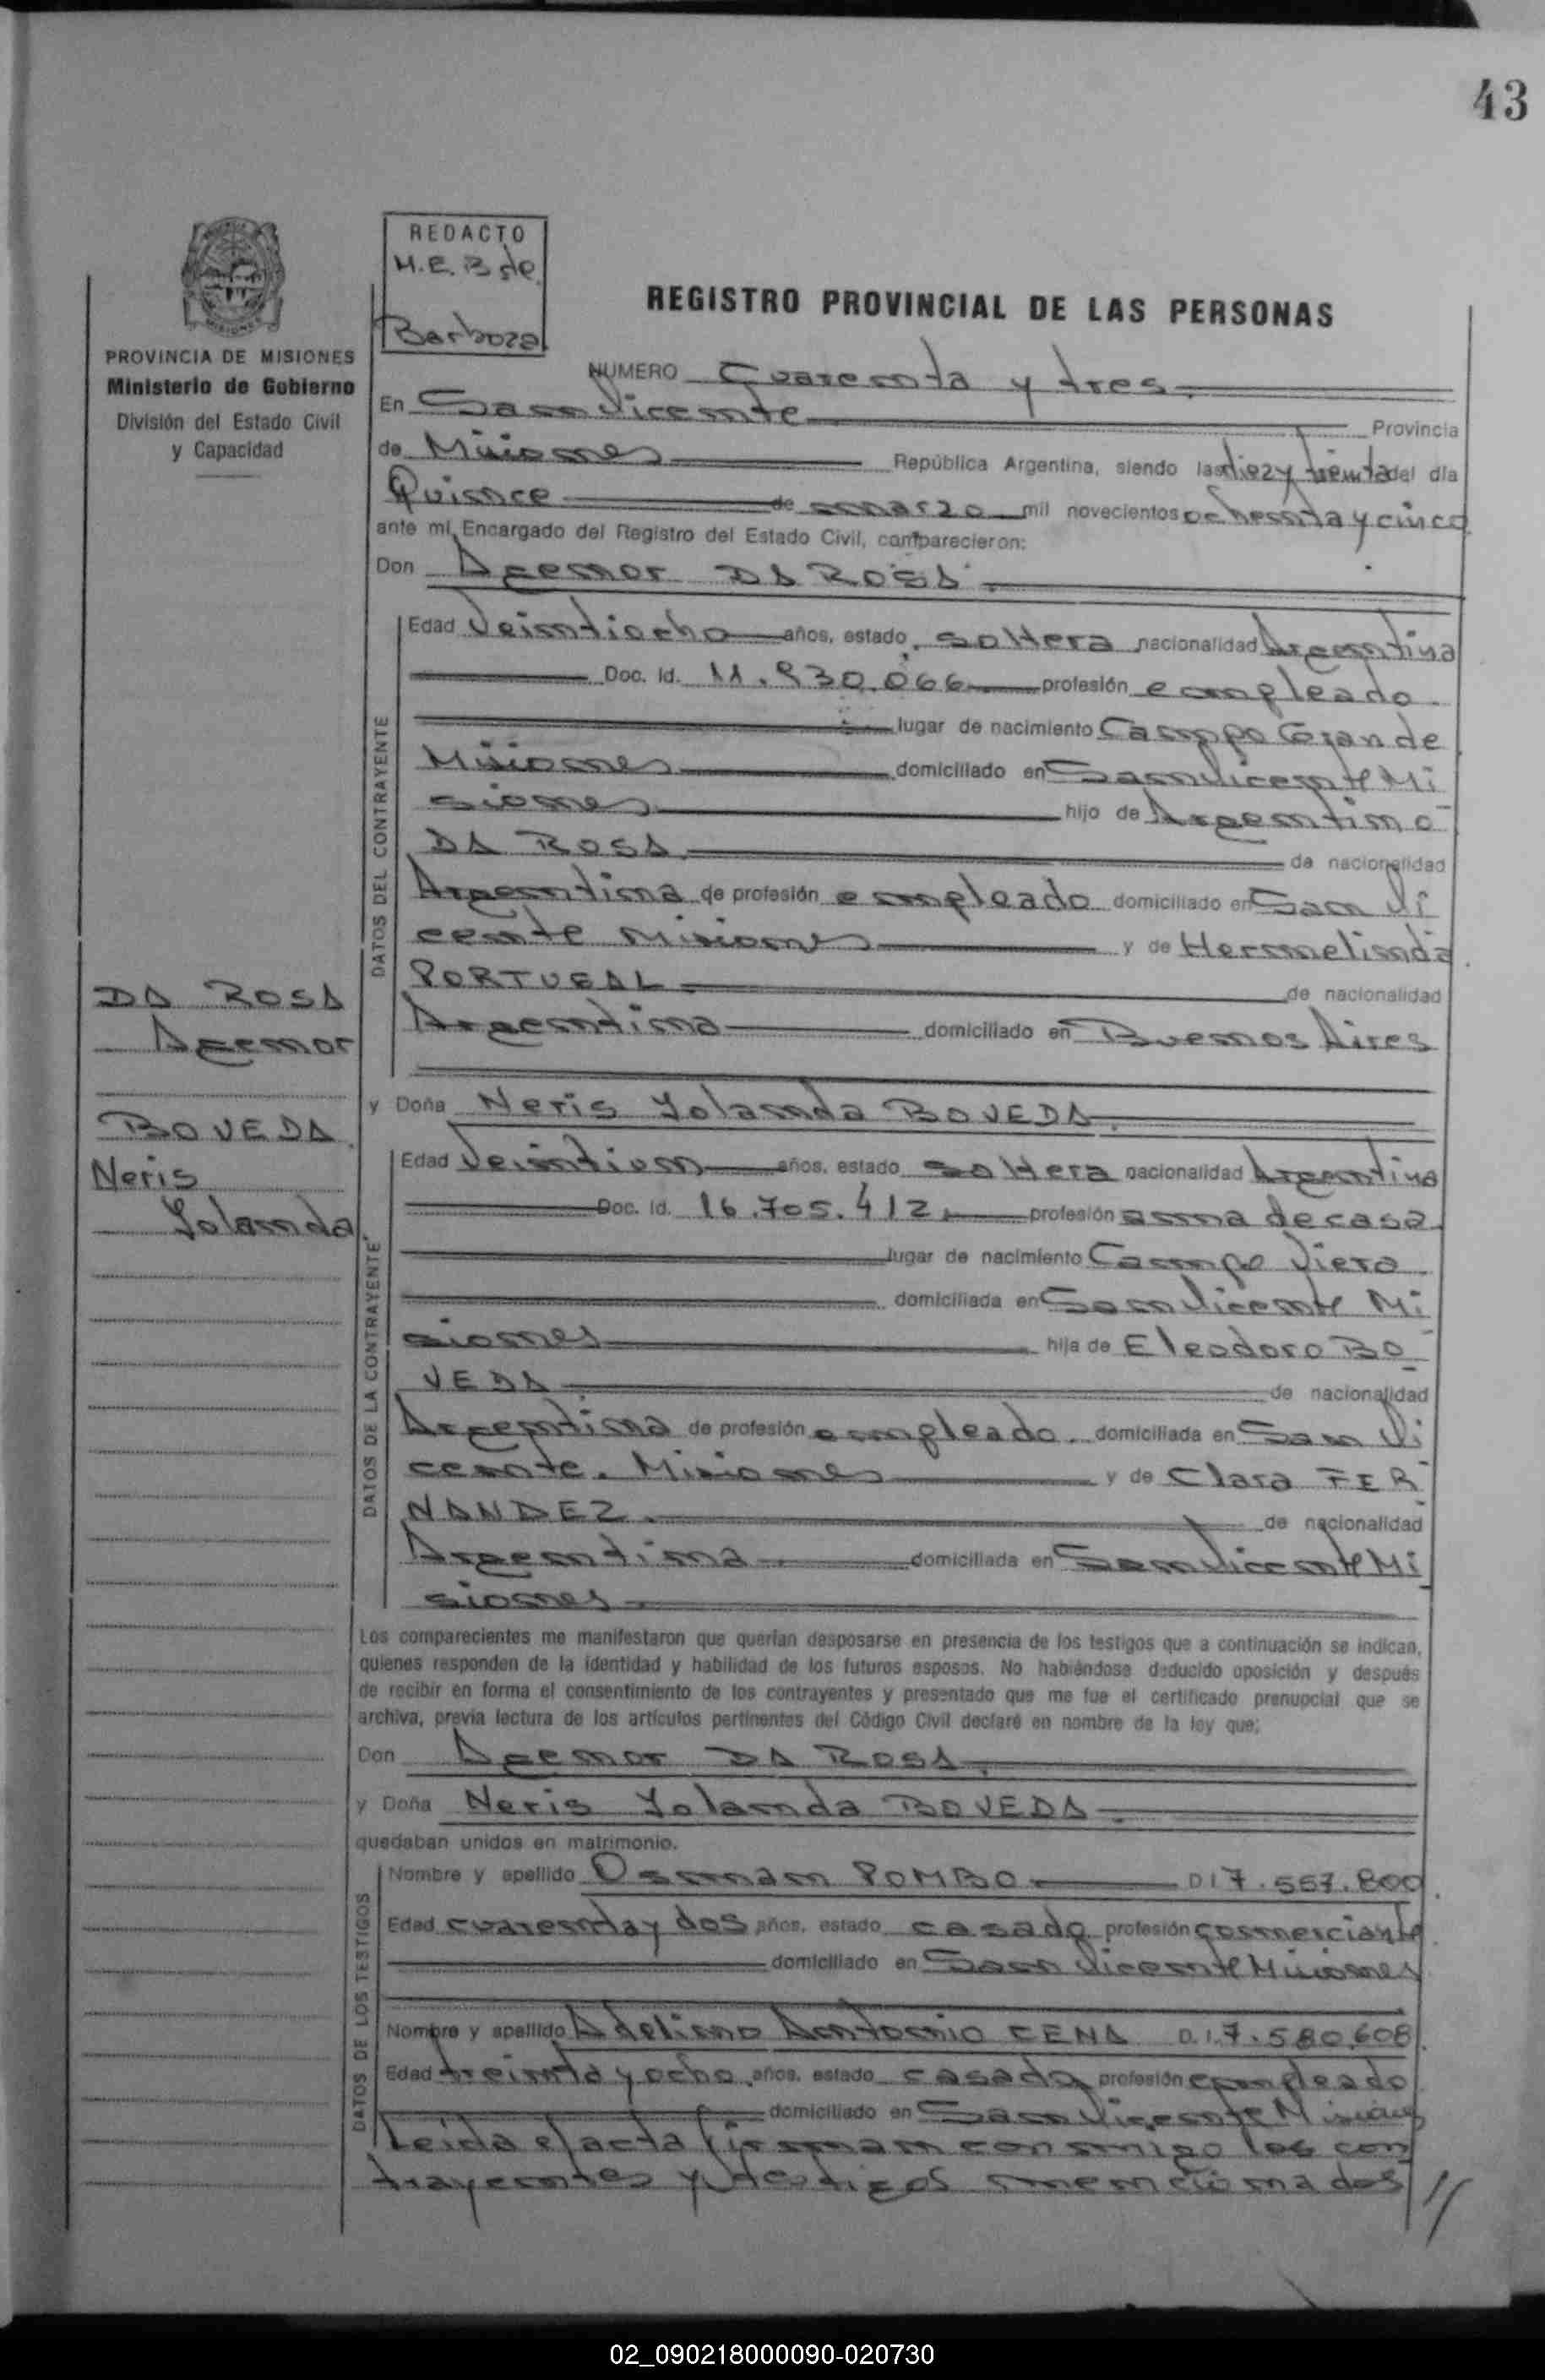 43
REDACTO
M.E.B de
Barboza
REGISTRO PROVINCIAL DE LAS PERSONAS
PROVINCIA DE MISIONES
Ministerio de Gobierno
División del Estado Civil
y Capacidad
NUMERO Cuarenta y tres
En San Vicente Provincia
de Misiones República Argentina, siendo las diez y treinta del día
Quince de marzo mil novecientos ochenta y cinco
ante mí, Encargado del Registro del Estado Civil, comparecieron:
Don Agenor DA ROSA
Edad Veintiocho años, estado soltera nacionalidad Argentina
Doc. Id. 11.830.066 profesión empleado
lugar de nacimiento Campo Grande
Misiones domiciliado en San Vicente Mi
siones hijo de Argentino
DA ROSA de nacionalidad
Argentina de profesión empleado domiciliado en San Vi
cente Misiones y de Hermelinda
PORTUGAL de nacionalidad
Argentina domiciliado en Buenos Aires
DATOS DEL CONTRAYENTE
DA ROSA
Agenor
BOVEDA
Neris
Yolanda
y Doña Neris Yolanda BOVEDA
Edad Veintiun años, estado soltera nacionalidad Argentina
Doc. Id. 16.705.412 profesión ama de casa
lugar de nacimiento Campo Viera
domiciliada en San Vicente Mi
siones hija de Eleodoro BO
VEDA de nacionalidad
Argentina de profesión empleado domiciliada en San Vi
cente. Misiones y de Clara FER
NANDEZ de nacionalidad
Argentina domiciliada en San Vicente Mi
siones
DATOS DE LA CONTRAYENTE
Los comparecientes me manifestaron que querían desposarse en presencia de los testigos que a continuación se indican,
quienes responden de la identidad y habilidad de los futuros esposos. No habiéndose deducido oposición y después
de recibir en forma el consentimiento de los contrayentes y presentado que me fue el certificado prenupcial que se
archiva, previa lectura de los artículos pertinentes del Código Civil declaré en nombre de la ley que:
Don Agenor DA ROSA
y Doña Neris Yolanda BOVEDA
quedaban unidos en matrimonio.
Nombre y apellido Osman POMBO DI 7.557.800
Edad cuarenta y dos años, estado casado profesión comerciante
domiciliado en San Vicente Misiones
Nombre y apellido Adelino Antonio CENA D.I. 7.580.608
Edad treinta y ocho años, estado casado profesión empleado
domiciliado en San Vicente Misiones
DATOS DE LOS TESTIGOS
Leida el acta firman conmigo los con
trayentes y testigos mencionados //
02_090218000090-020730